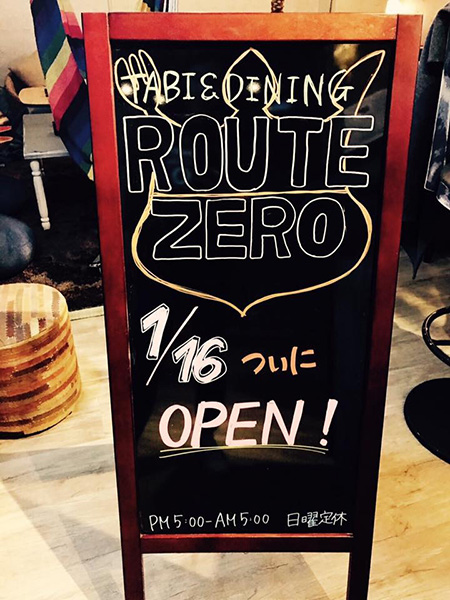 TABI&DINING
ROUTE
ZERO
1/16 ついに
OPEN!
PM 5:00-AM 5:00 日曜定休